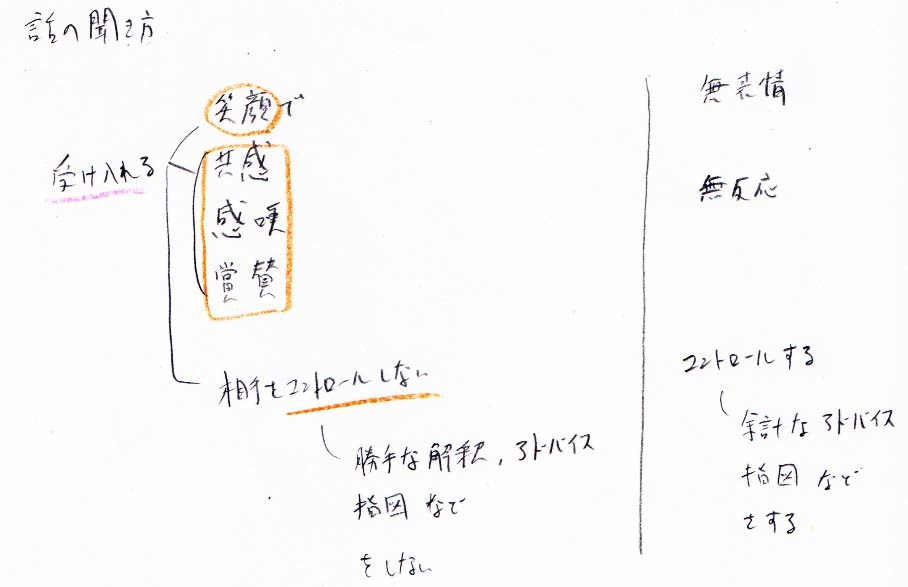 話の聞き方
笑顔で
受け入れる
共感
感嘆
賞賛
相手をコントロールしない
勝手な解釈、アドバイス
指図 など
をしない
無表情
無反応
コントロールする
余計な アドバイス
指図 など
をする